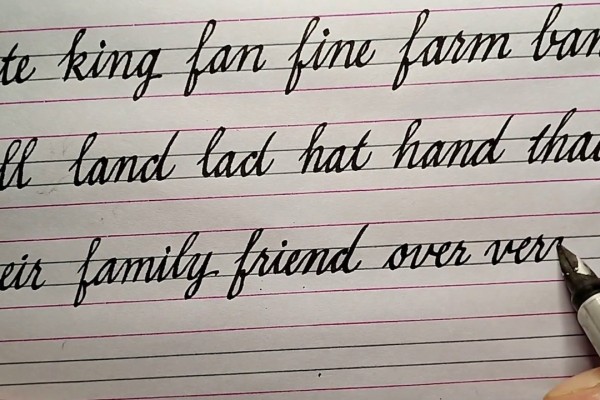 te king fan fine farm ban
ll land lad hat hand that
eir family friend over ver